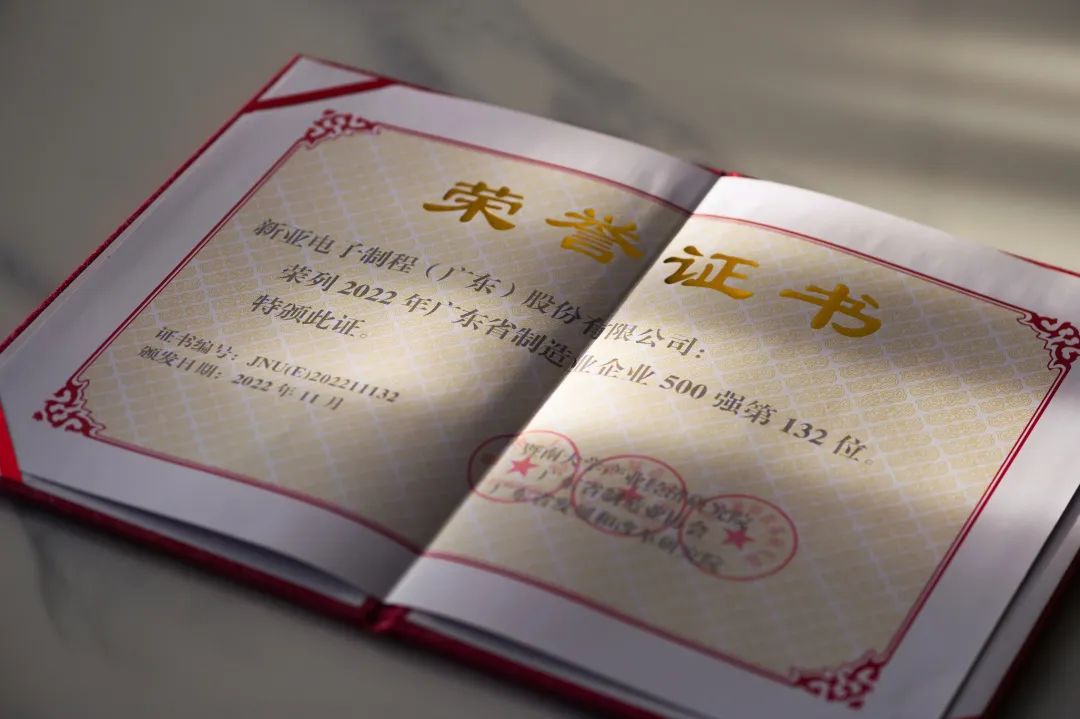 荣誉证书
新亚电子制程（广东）股份有限公司：
荣列 2022 年广东省制造业企业 500 强第 132 位。
特颁此证。
证书编号：JNU(E)202211132
颁发日期：2022 年 11 月
暨南大学产业经济研究院
广东省制造业协会
广东省发展和改革研究院